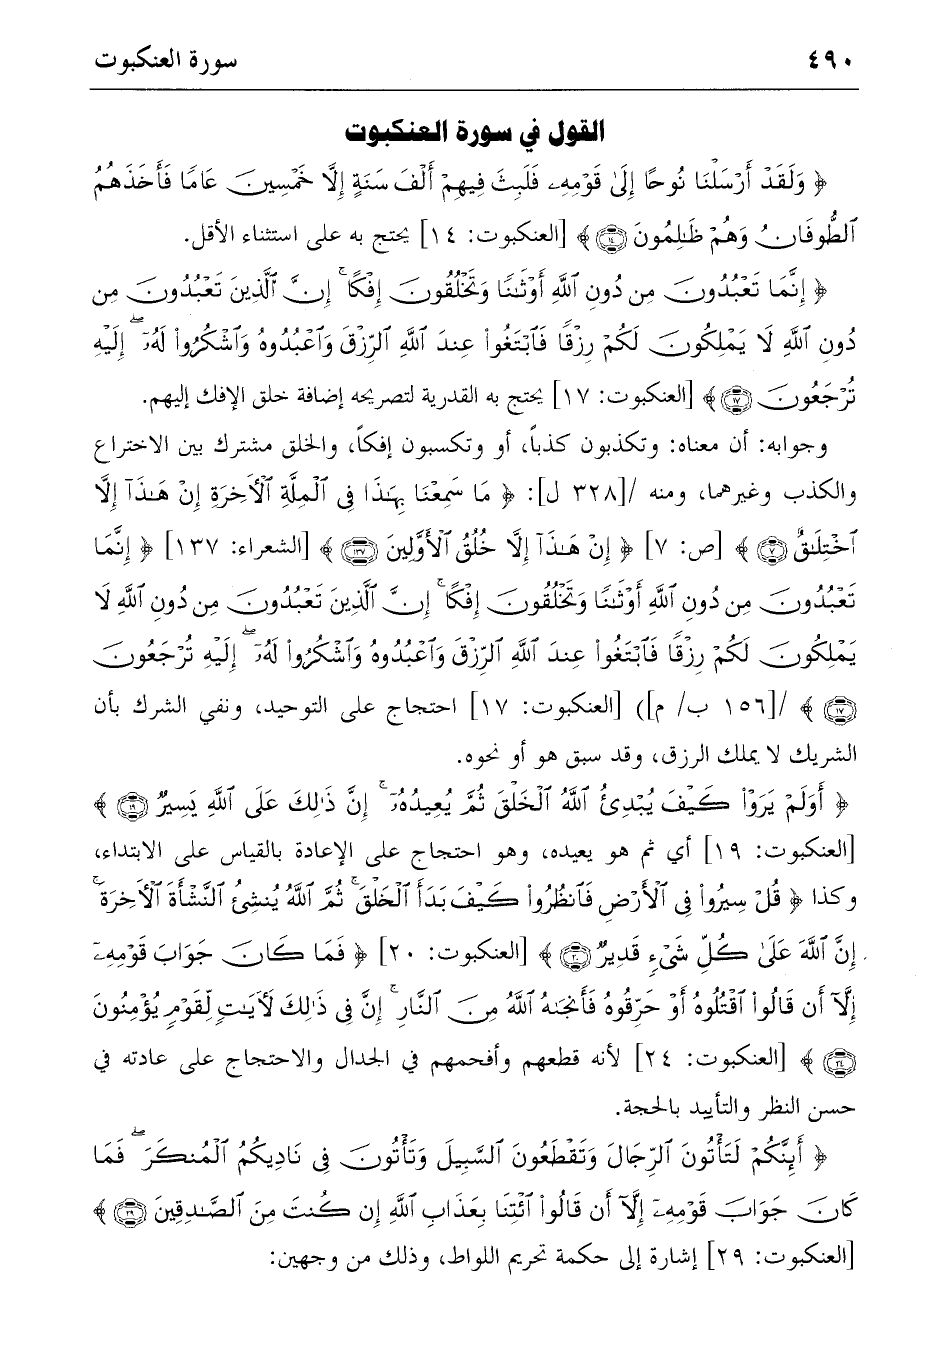 ٤٩٠ سورة العنكبوت
القول في سورة العنكبوت
﴿ وَلَقَدْ أَرْسَلْنَا نُوحًا إِلَىٰ قَوْمِهِۦ فَلَبِثَ فِيهِمْ أَلْفَ سَنَةٍ إِلَّا خَمْسِينَ عَامًا فَأَخَذَهُمُ
ٱلطُّوفَانُ وَهُمْ ظَـٰلِمُونَ ١٤ ﴾ [العنكبوت: ١٤] يحتج به على استثناء الأقل.
﴿ إِنَّمَا تَعْبُدُونَ مِن دُونِ ٱللَّهِ أَوْثَـٰنًا وَتَخْلُقُونَ إِفْكًا ۚ إِنَّ ٱلَّذِينَ تَعْبُدُونَ مِن
دُونِ ٱللَّهِ لَا يَمْلِكُونَ لَكُمْ رِزْقًا فَٱبْتَغُوا۟ عِندَ ٱللَّهِ ٱلرِّزْقَ وَٱعْبُدُوهُ وَٱشْكُرُوا۟ لَهُۥٓ ۖ إِلَيْهِ
تُرْجَعُونَ ١٧ ﴾ [العنكبوت: ١٧] يحتج به القدرية لتصريحه إضافة خلق الإفك إليهم.
وجوابه: أن معناه: وتكذبون كذباً، أو وتكسبون إفكاً، والخلق مشترك بين الاختراع
والكذب وغيرهما، ومنه /[٣٢٨ ل]: ﴿ مَا سَمِعْنَا بِهَـٰذَا فِى ٱلْمِلَّةِ ٱلْـَٔاخِرَةِ إِنْ هَـٰذَآ إِلَّا
ٱخْتِلَـٰقٌ ٧ ﴾ [ص: ٧] ﴿ إِنْ هَـٰذَآ إِلَّا خُلُقُ ٱلْأَوَّلِينَ ١٣٧ ﴾ [الشعراء: ١٣٧] ﴿ إِنَّمَا
تَعْبُدُونَ مِن دُونِ ٱللَّهِ أَوْثَـٰنًا وَتَخْلُقُونَ إِفْكًا ۚ إِنَّ ٱلَّذِينَ تَعْبُدُونَ مِن دُونِ ٱللَّهِ لَا
يَمْلِكُونَ لَكُمْ رِزْقًا فَٱبْتَغُوا۟ عِندَ ٱللَّهِ ٱلرِّزْقَ وَٱعْبُدُوهُ وَٱشْكُرُوا۟ لَهُۥٓ ۖ إِلَيْهِ تُرْجَعُونَ
١٧ ﴾ /[١٥٦ ب/ م]) [العنكبوت: ١٧] احتجاج على التوحيد، ونفي الشرك بأن
الشريك لا يملك الرزق، وقد سبق هو أو نحوه.
﴿ أَوَلَمْ يَرَوْا۟ كَيْفَ يُبْدِئُ ٱللَّهُ ٱلْخَلْقَ ثُمَّ يُعِيدُهُۥٓ ۚ إِنَّ ذَٰلِكَ عَلَى ٱللَّهِ يَسِيرٌ ١٩ ﴾
[العنكبوت: ١٩] أي ثم هو يعيده، وهو احتجاج على الإعادة بالقياس على الابتداء،
وكذا ﴿ قُلْ سِيرُوا۟ فِى ٱلْأَرْضِ فَٱنظُرُوا۟ كَيْفَ بَدَأَ ٱلْخَلْقَ ۚ ثُمَّ ٱللَّهُ يُنشِئُ ٱلنَّشْأَةَ ٱلْـَٔاخِرَةَ ۚ
إِنَّ ٱللَّهَ عَلَىٰ كُلِّ شَىْءٍ قَدِيرٌ ٢٠ ﴾ [العنكبوت: ٢٠] ﴿ فَمَا كَانَ جَوَابَ قَوْمِهِۦٓ
إِلَّآ أَن قَالُوا۟ ٱقْتُلُوهُ أَوْ حَرِّقُوهُ فَأَنجَىٰهُ ٱللَّهُ مِنَ ٱلنَّارِ ۚ إِنَّ فِى ذَٰلِكَ لَـَٔايَـٰتٍ لِّقَوْمٍ يُؤْمِنُونَ
٢٤ ﴾ [العنكبوت: ٢٤] لأنه قطعهم وأفحمهم في الجدال والاحتجاج على عادته في
حسن النظر والتأييد بالحجة.
﴿ أَئِنَّكُمْ لَتَأْتُونَ ٱلرِّجَالَ وَتَقْطَعُونَ ٱلسَّبِيلَ وَتَأْتُونَ فِى نَادِيكُمُ ٱلْمُنكَرَ ۖ فَمَا
كَانَ جَوَابَ قَوْمِهِۦٓ إِلَّآ أَن قَالُوا۟ ٱئْتِنَا بِعَذَابِ ٱللَّهِ إِن كُنتَ مِنَ ٱلصَّـٰدِقِينَ ٢٩ ﴾
[العنكبوت: ٢٩] إشارة إلى حكمة تحريم اللواط، وذلك من وجهين: